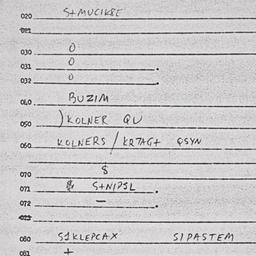 020 S+MUCIKSE
021
030 0
031 0
032 0
040 BUZIM
050 )KOLNER QU
060 KOLNERS / KRTAG+ QSYN
070 $
071 $ S+NIPSL
072 –
073
080 S1KLEPCAX SIPASTEM
081 +